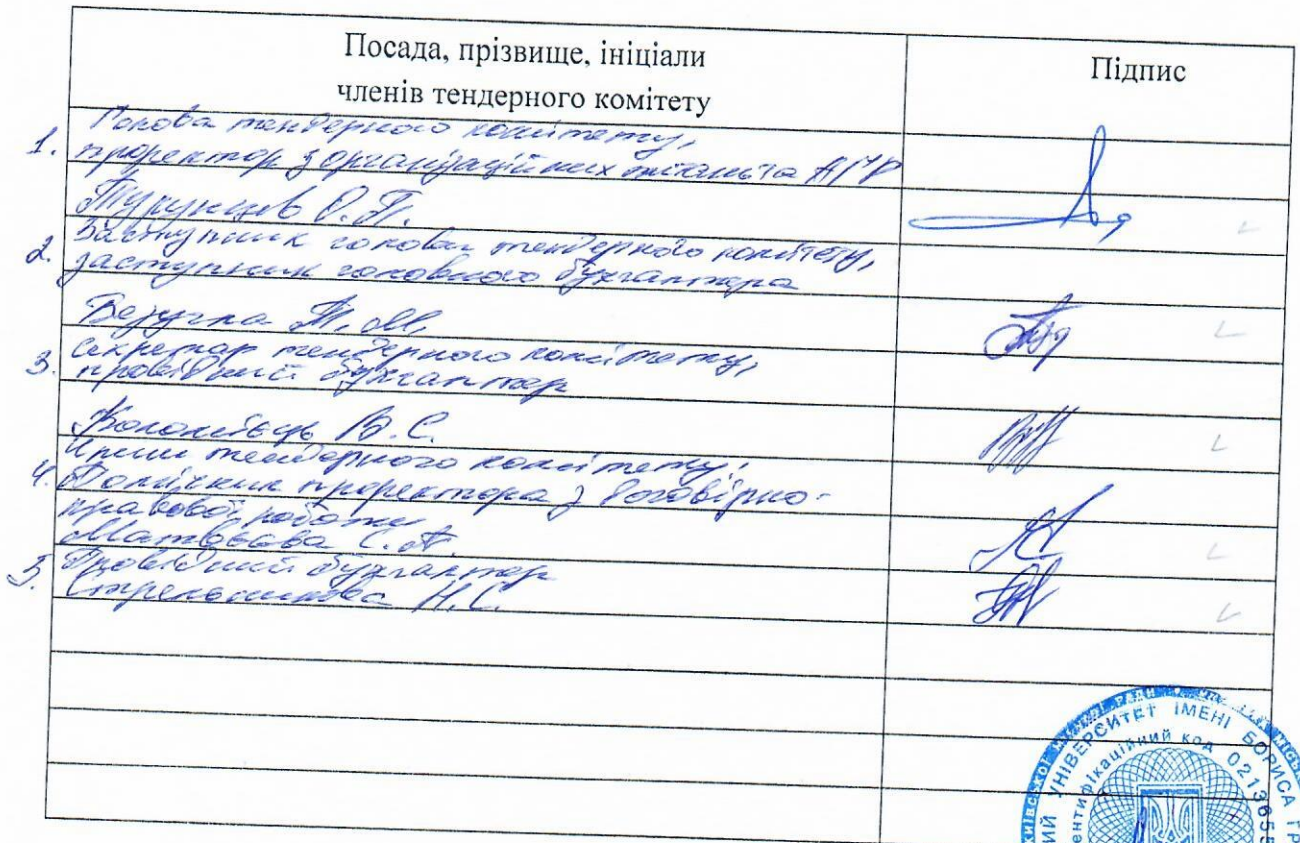 Посада, прізвище, ініціали
членів тендерного комітету
Підпис
1. Голова тендерного комітету,
проректор з організаційних питань та АГР
Турунцев О.П.
2. Заступник голови тендерного комітету,
заступник головного бухгалтера
Безручка Т.М.
3. Секретар тендерного комітету,
провідний бухгалтер
Коломієць В.С.
Члени тендерного комітету:
4. Помічник проректора з договірно-
правової роботи
Матвєєва С.А.
5. Провідний бухгалтер
Стрельникова Н.С.
УНІВЕРСИТЕТ ІМЕНІ БОРИСА
код